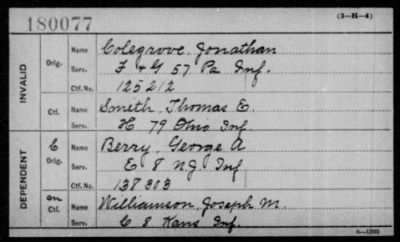 180077
(3-H-4)
INVALID
Orig.
Name Colegrove, Jonathan
Serv. F & G 57 Pa Inf.
Ctf. No. 125212
Ctf.
Name Smith, Thomas E.
Serv. H 79 Ohio Inf.
DEPENDENT
C
Orig.
Name Berry, George A
Serv. E 8 N.J. Inf
Ctf. No. 138303
Ctf.
Name Williamson, Joseph M.
Serv. C 8 Kans Inf.